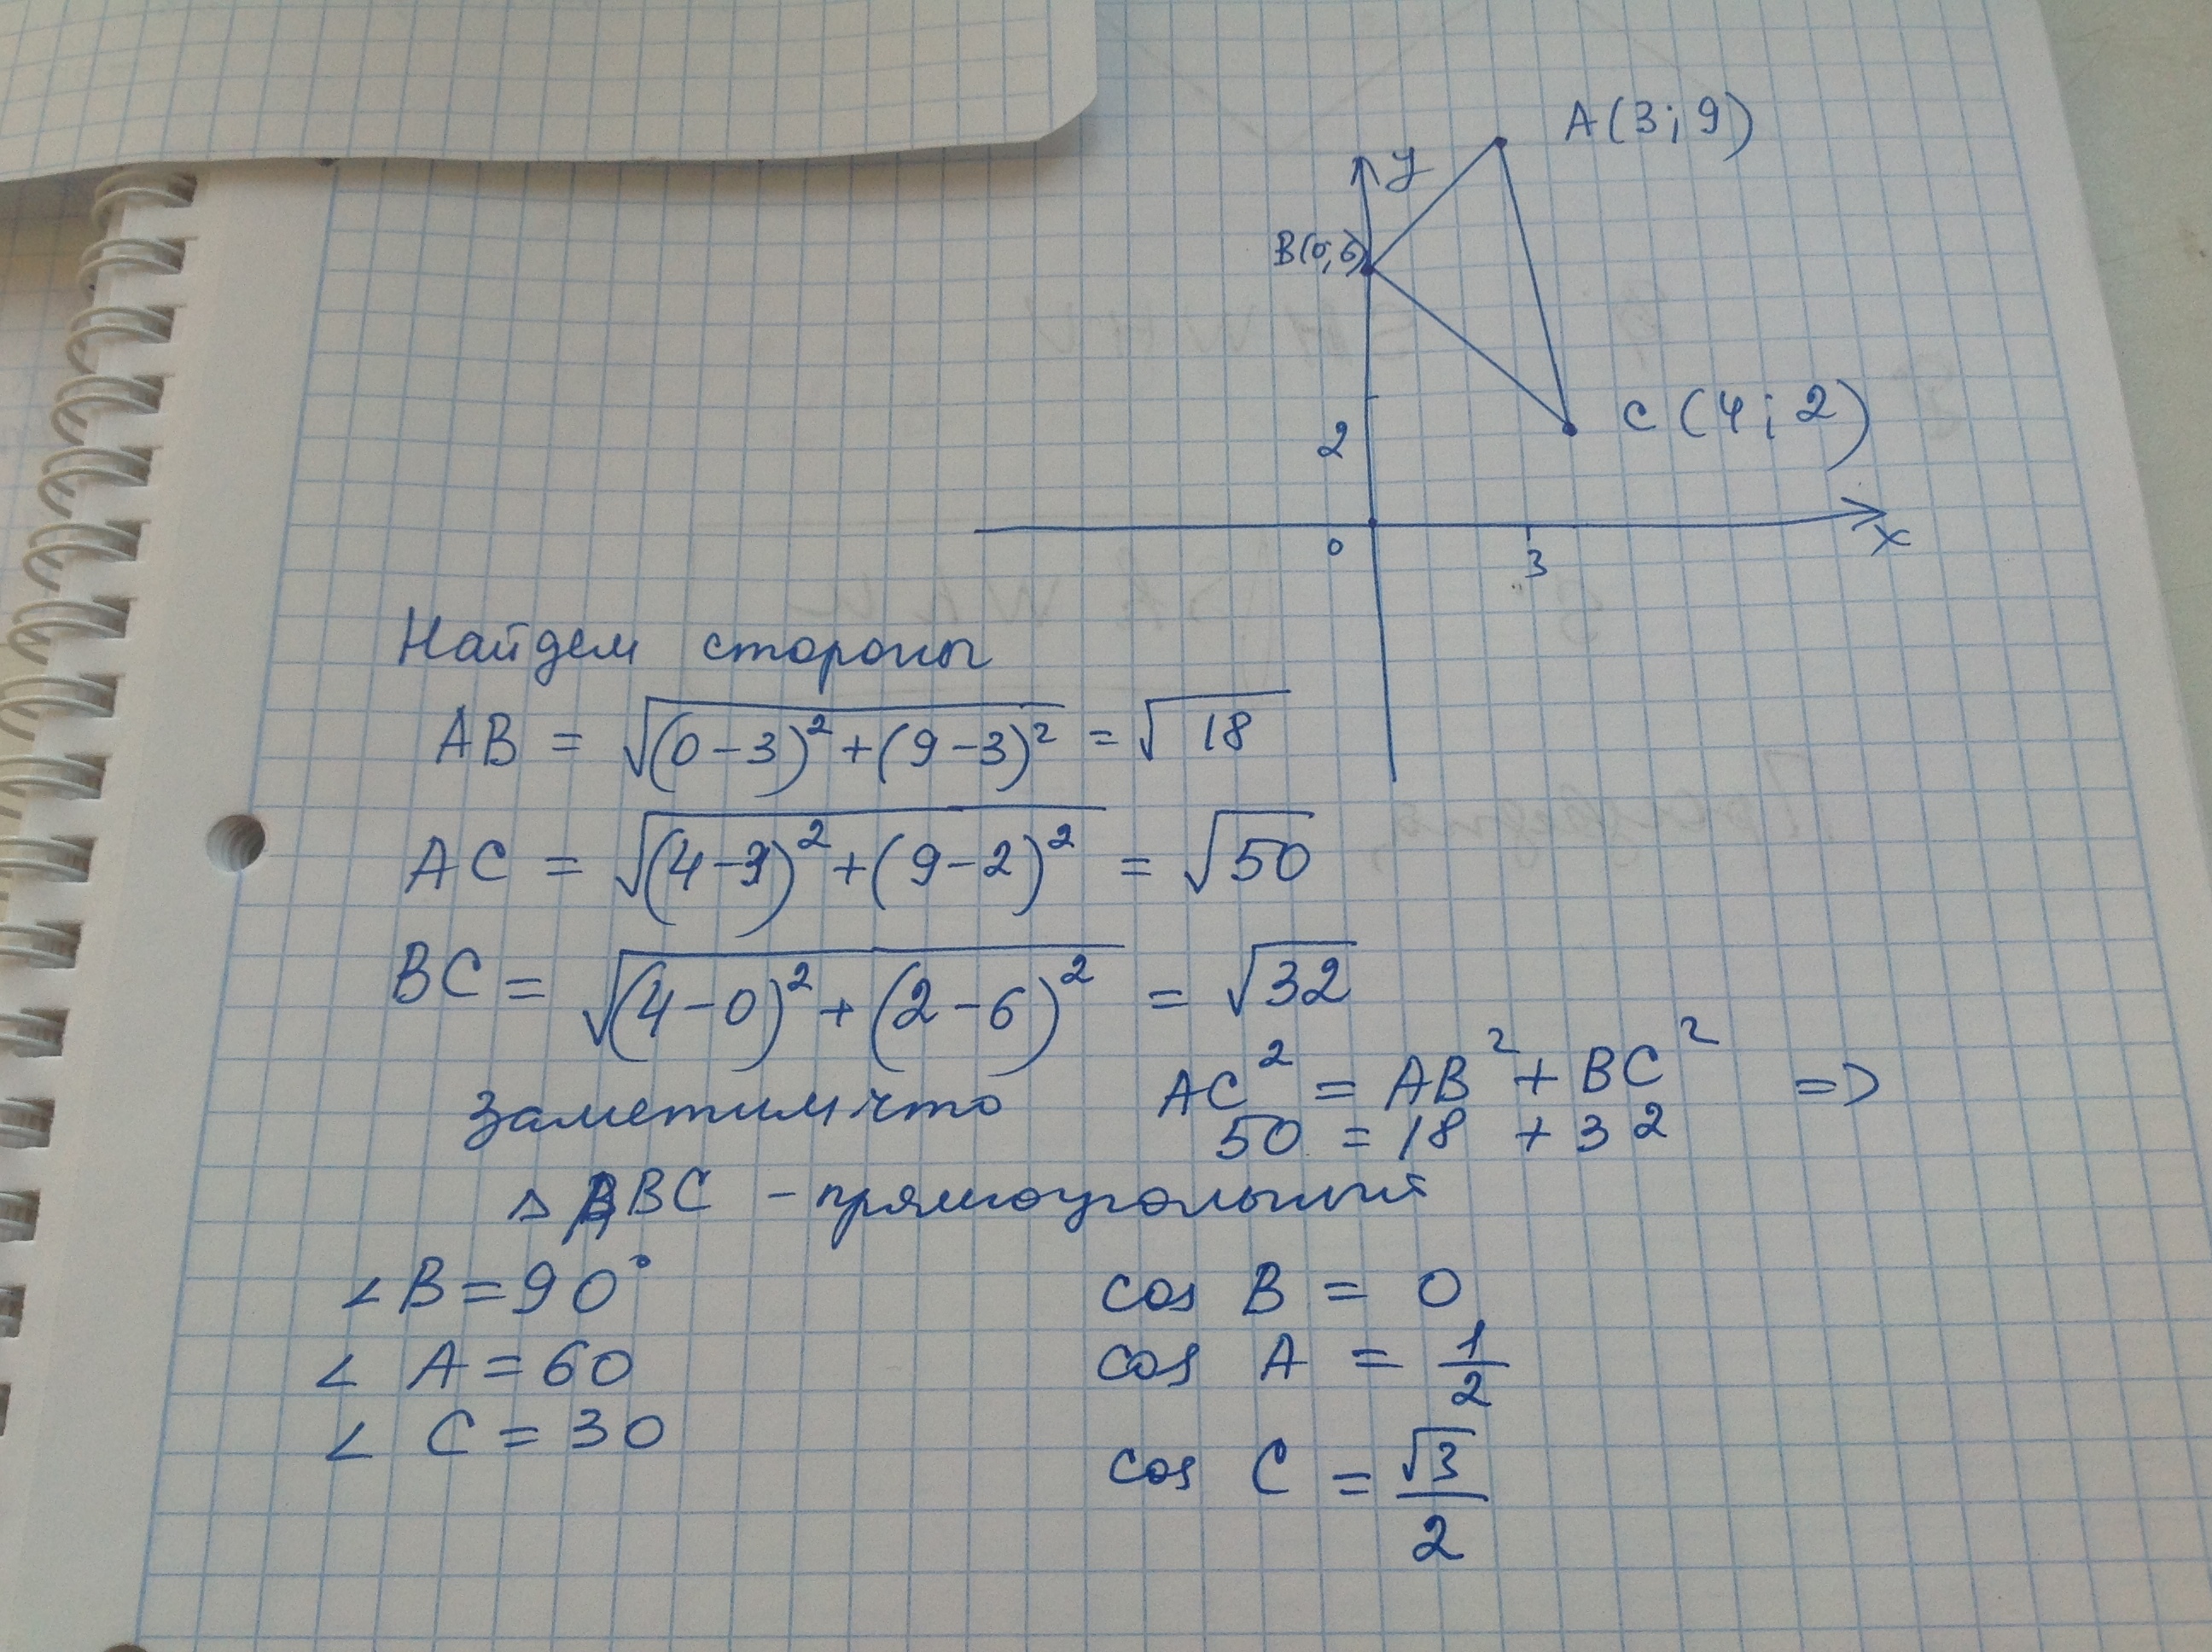 A(3;9)
y
B(0;6)
2
C(4;2)
0
3
x
Найдем стороны
AB = √(0-3)²+(9-3)² = √18
AC = √(4-3)²+(9-2)² = √50
BC = √(4-0)²+(2-6)² = √32
Заметим что AC² = AB² + BC² =>
50 = 18 + 32
△ ABC - прямоугольный
∠B = 90° cos B = 0
∠ A = 60 cos A = 1/2
∠ C = 30 cos C = √3/2